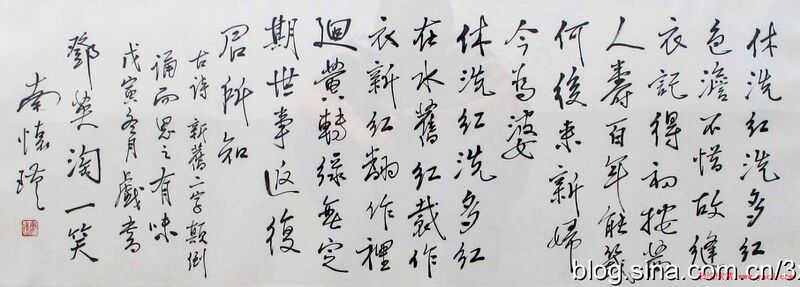 休洗紅洗多紅
色澹不惜故縫
衣記得初按茜
人壽百年能幾
何後来新婦
今為婆
休洗紅洗多紅
在水舊紅裁作
衣新紅翻作裡
廻黄轉綠無定
期世事返復
君所知
古诗 新舊二字顛倒
誦而思之有味
戊寅冬月戲書
鄧英淘一笑
南懷瑾
blog.sina.com.cn/3